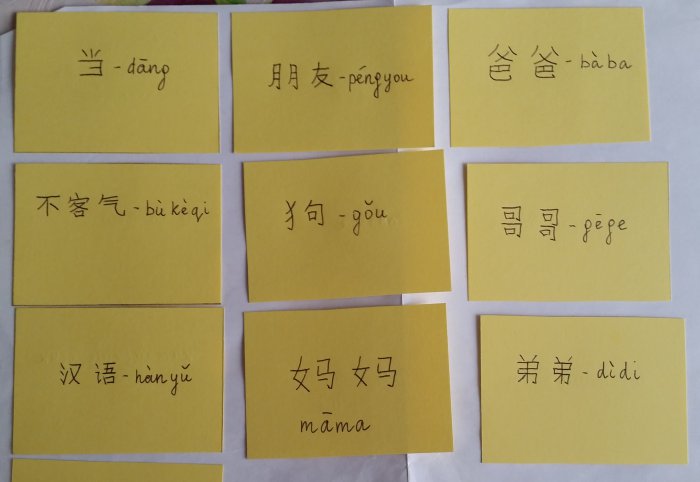 当 - dāng
朋友 - péngyou
爸爸 - bàba
不客气 - bù kèqi
狗 - gǒu
哥哥 - gēge
汉语 - hànyǔ
妈妈
māma
弟弟 - dìdi